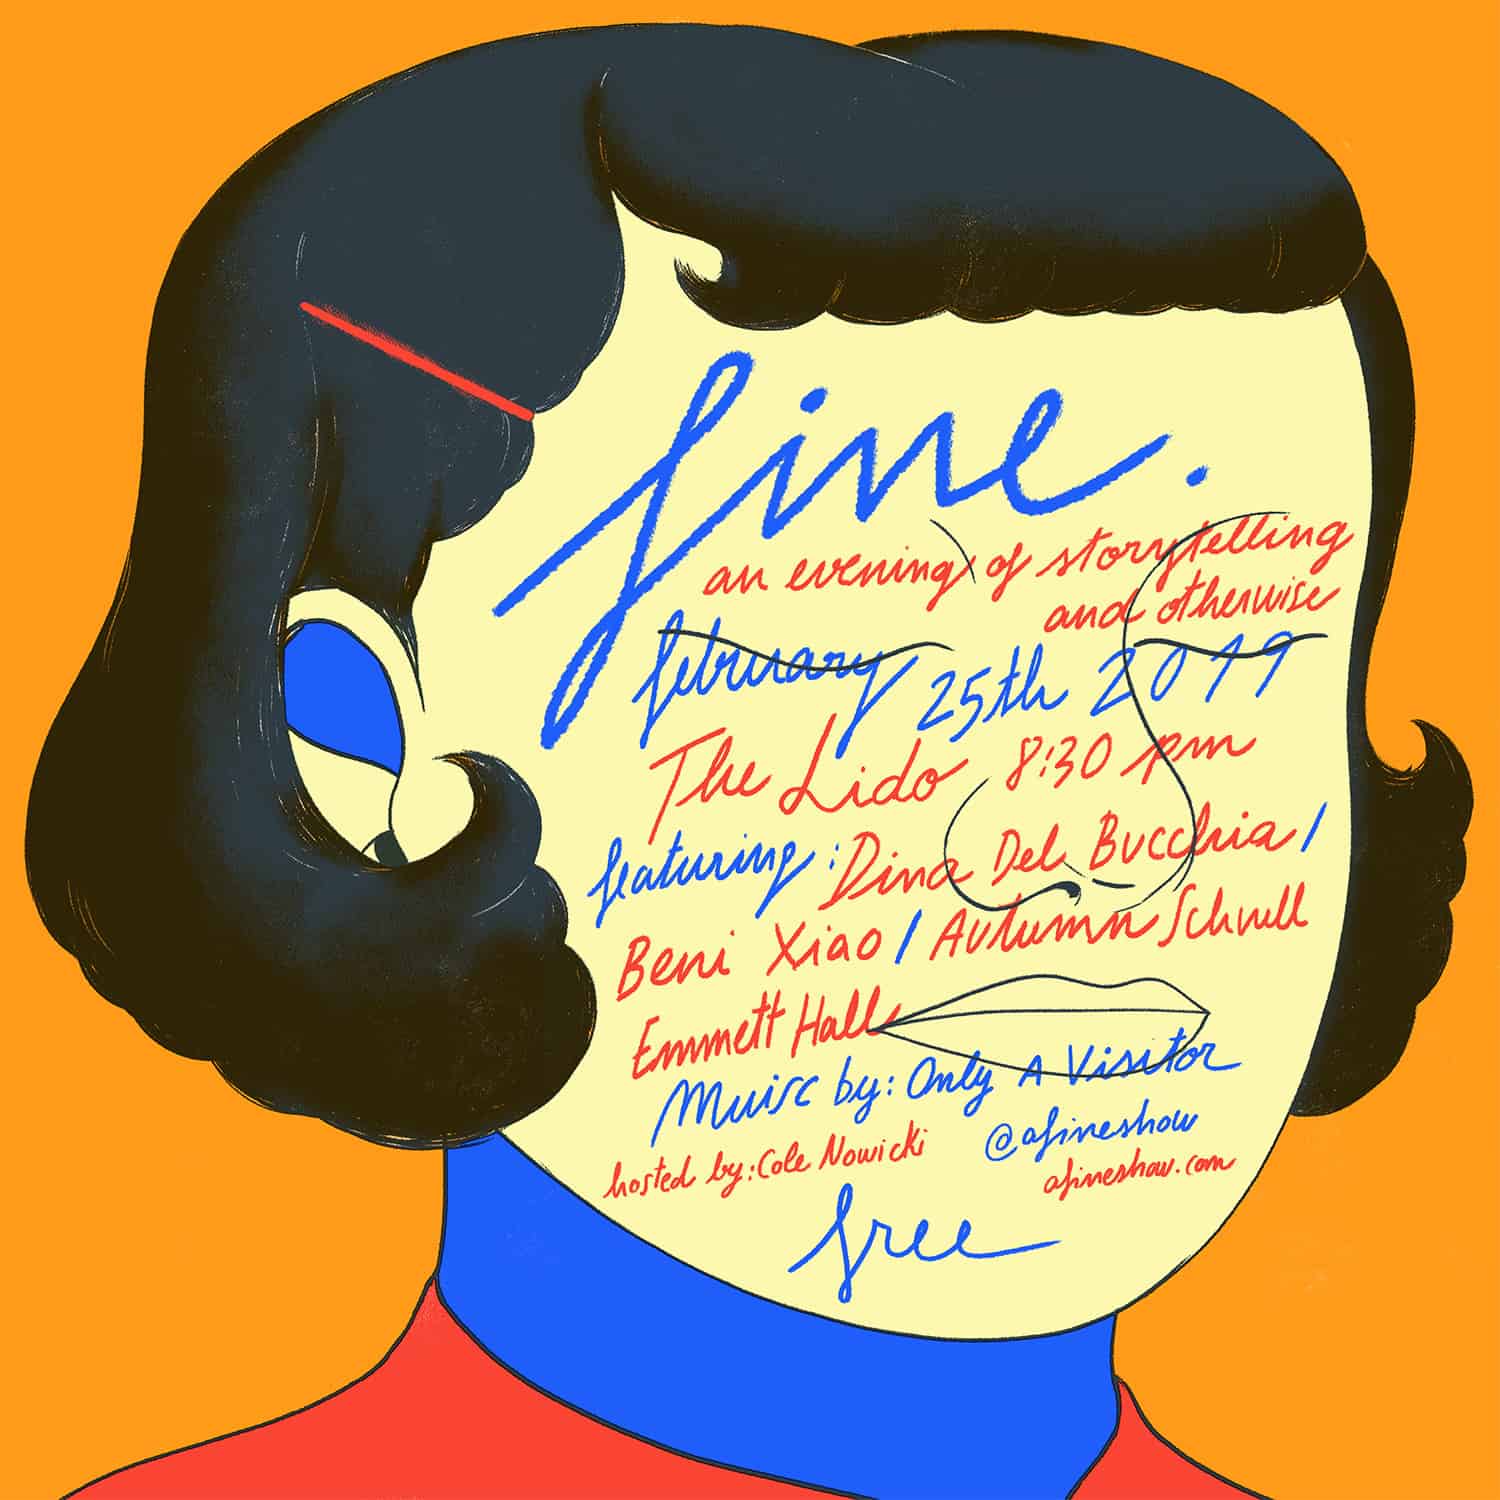 fine.
an evening of storytelling
and otherwise
february 25th 2019
The Lido 8:30 pm
featuring: Dina Del Bucchia /
Beni Xiao / Autumn Schnell
Emmett Hall
Muisc by: Only A Visitor
@afineshow
hosted by: Cole Nowicki
afineshow.com
free